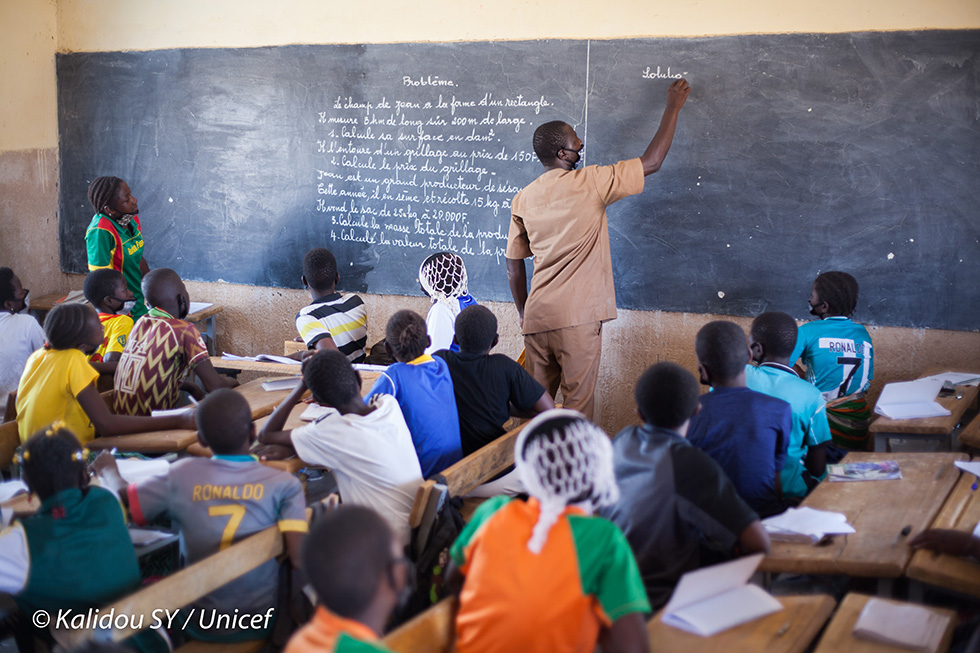 Problème.
Le champ de Jean a la fame d'un rectangle.
Il mesure 3 hm de long sûr 200m de large.
1. Calcule sa surface en dam².
Il l'entoure d'un grillage au prix de 150F
2. Calcule le prix du grillage.
Jean est un grand producteur de sésa
Cette année, il en sème et récolte 15 kg à
Il vend le sac de 25kg à 20.000F.
3. Calcule la masse totale de la produ
4. Calcule la valeur totale de la pr
Solutio
RONALDO
7
RONALDO
7
© Kalidou SY / Unicef